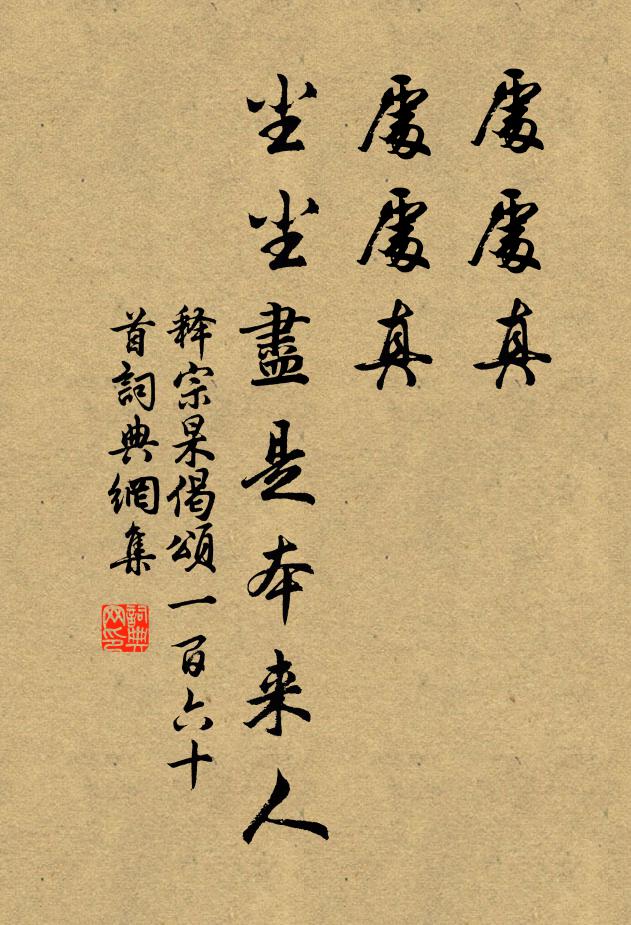 處處真
處處真
尘尘盡是本来人
释宗杲偈頌一百六十
首詞典網集
詞典网印